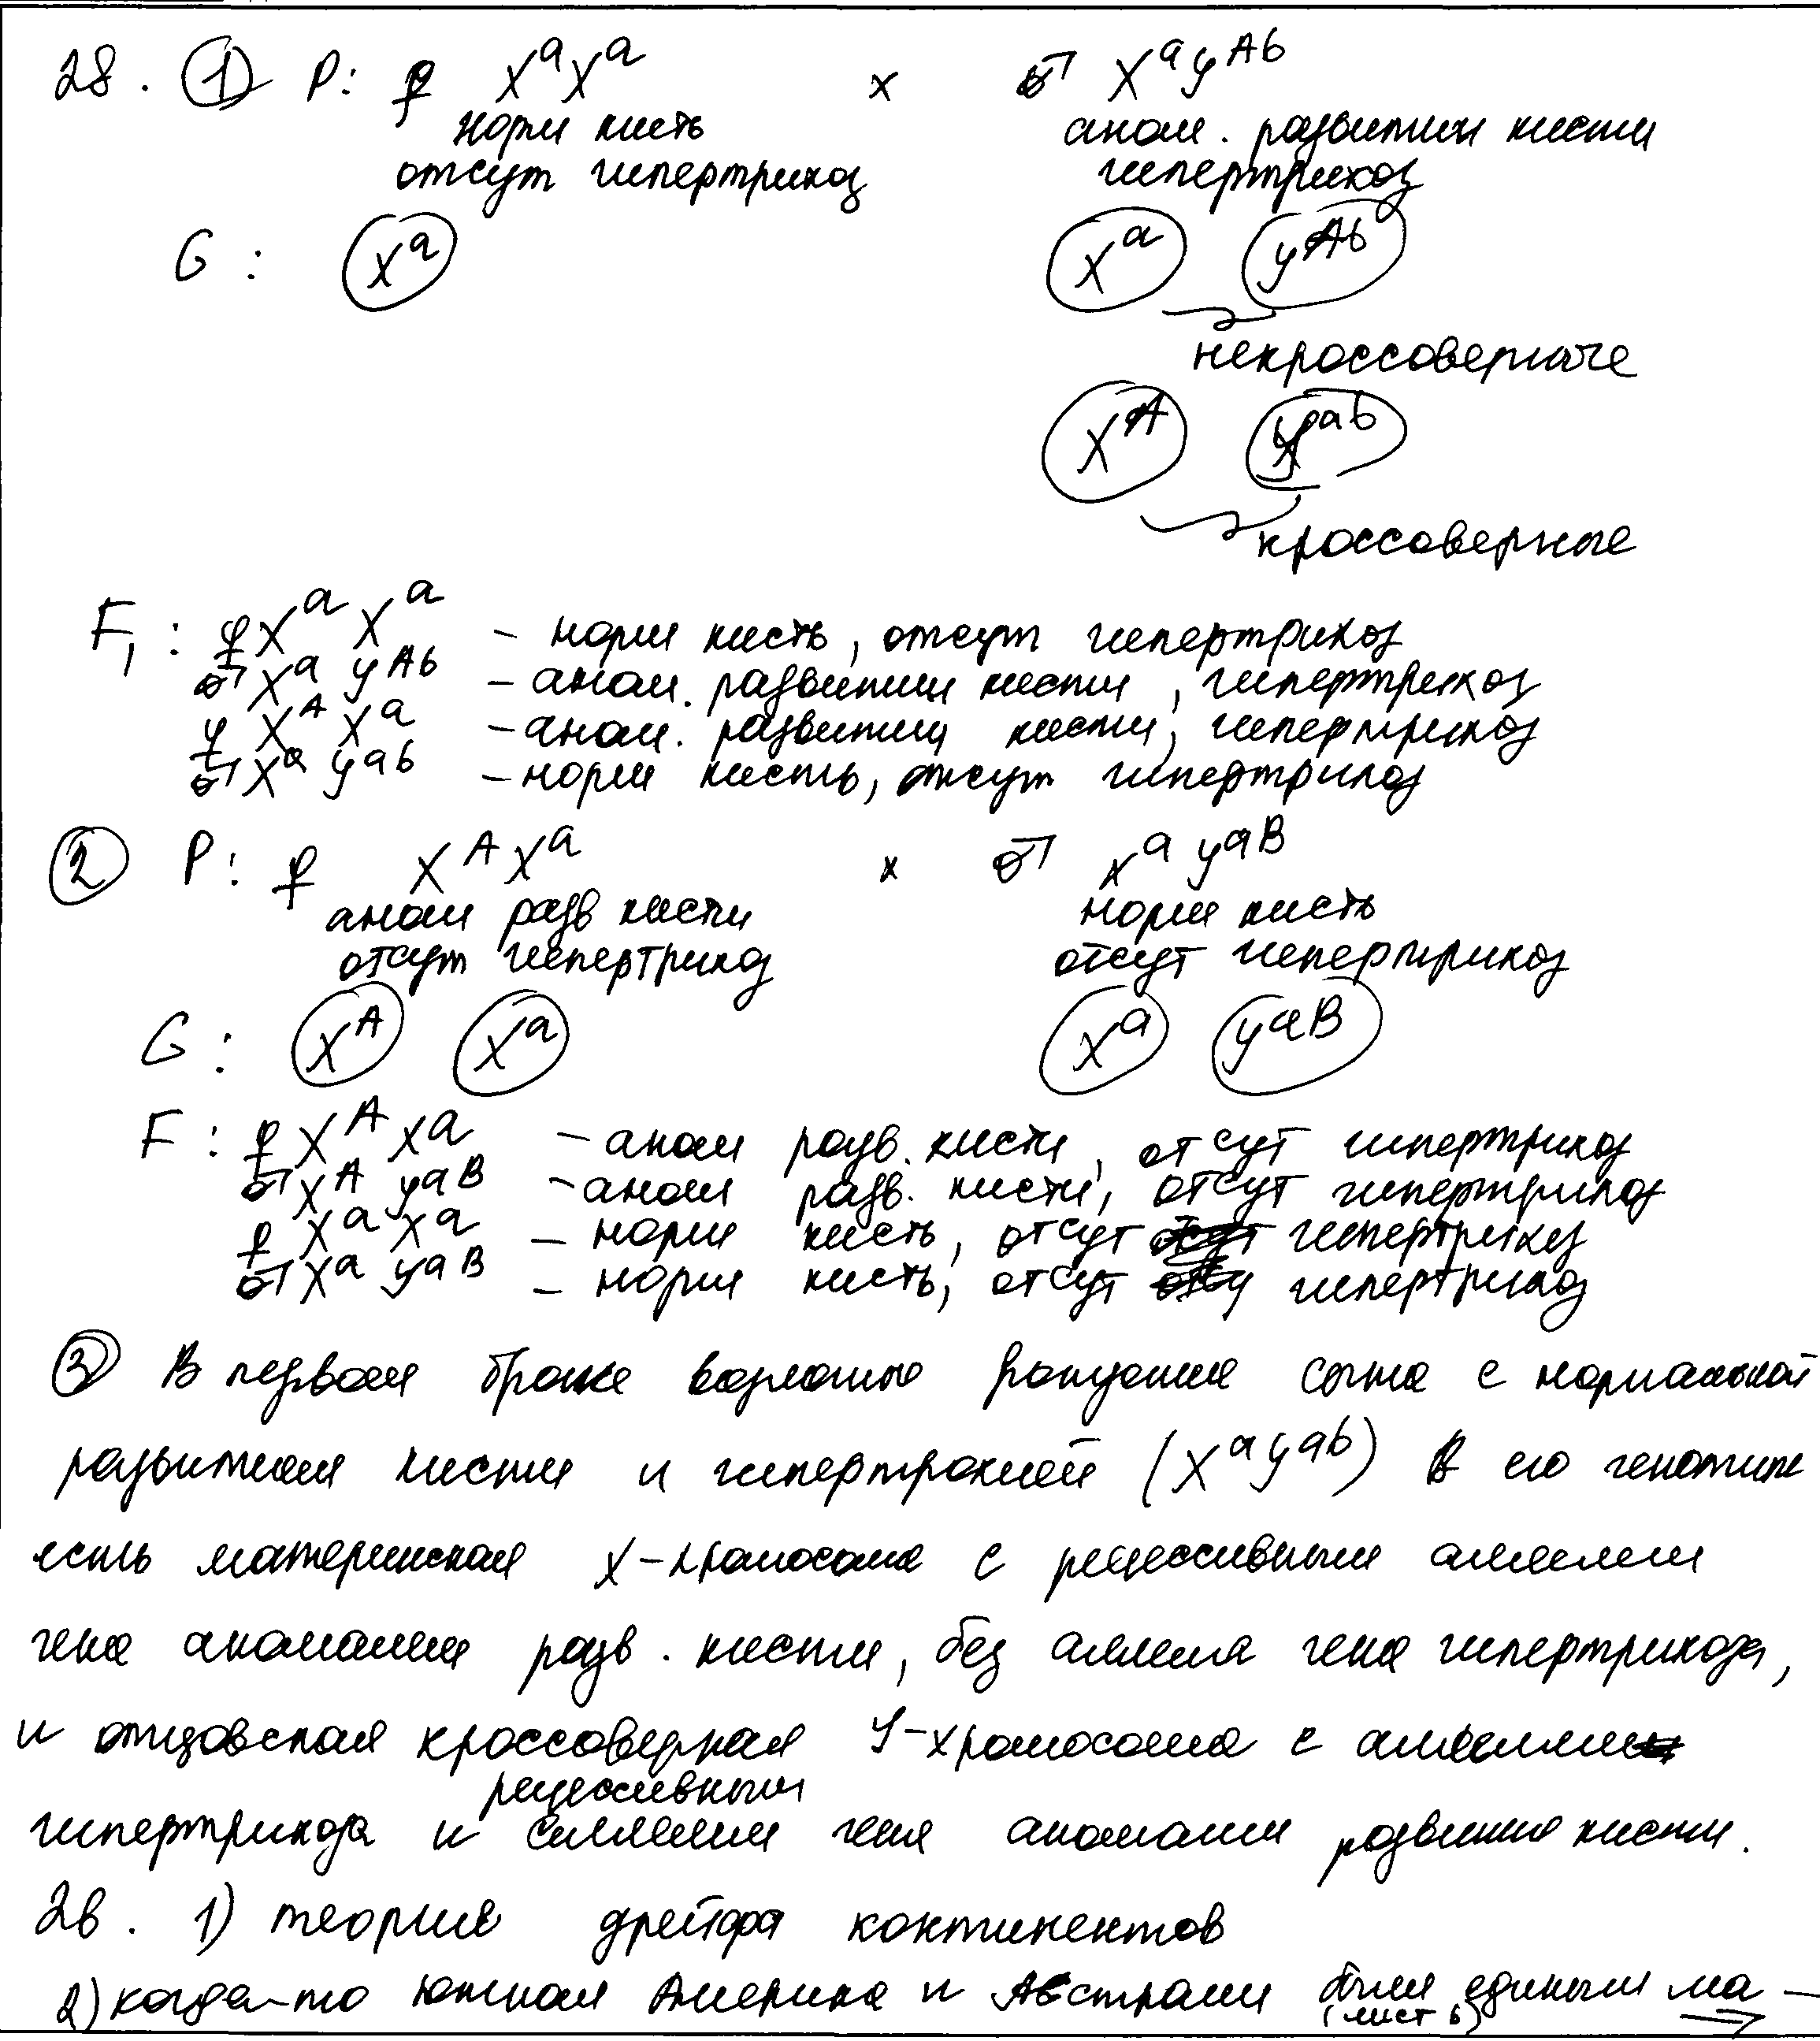 28. 1 P: ♀ XᵃXᵃ x ♂ XᵃyᴬЬ
норм кисть аном. развитии кисти
отсут гипертрихоз гипертрихоз
G: Xᵃ Xᵃ yᴬЬ
некроссоверные
Xᴬ yᵃЬ
кроссоверные
F₁: ♀ Xᵃ Xᵃ – норм кисть, отсут гипертрихоз
♂ Xᵃ yᴬЬ – аном. развитии кисти, гипертрихоз
♀ Xᴬ Xᵃ – аном. развитии кисти, гипертрихоз
♂ Xᵃ yᵃЬ – норм кисть, отсут гипертрихоз
2 P: ♀ XᴬXᵃ x ♂ Xᵃ yᵃB
аном разв кисти норм кисть
отсут гипертрихоз отсут гипертрихоз
G: Xᴬ Xᵃ Xᵃ yᵃB
F: ♀ Xᴬ Xᵃ – аном разв. кисти, отсут гипертрихоз
♂ Xᴬ yᵃB – аном разв. кисти, отсут гипертрихоз
♀ Xᵃ Xᵃ – норм кисть, отсут гипертрихоз
♂ Xᵃ yᵃB – норм кисть, отсут гипертрихоз
3 В первом браке сына с нормальной
развитием кисти и (XᵃyᵃЬ) В его генотипе
есть материнская X-хромосома с рецессивным аллелем
гена аномалии разв. кисти, без аллеля гена гипертрихоза,
и отцовская кроссоверная У-хромосома с аллелем
рецессивным
гипертрихоза и аллелем гена аномалии развития кисти.
26. 1) теория дрейфа континентов
2) когда-то южная Америка и Австралия были единым ма-
(лист 6)